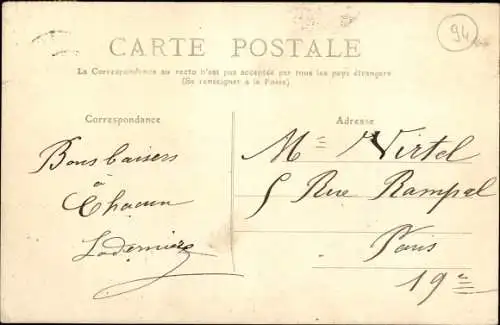 94
CARTE POSTALE
La Correspondance au recto n'est pas acceptée par tous les pays étrangers
(Se renseigner à la Poste)
Correspondance
Bons baisers
à
Chacun
Adresse
Mme Virtel
5 Rue Rampal
Paris
19e